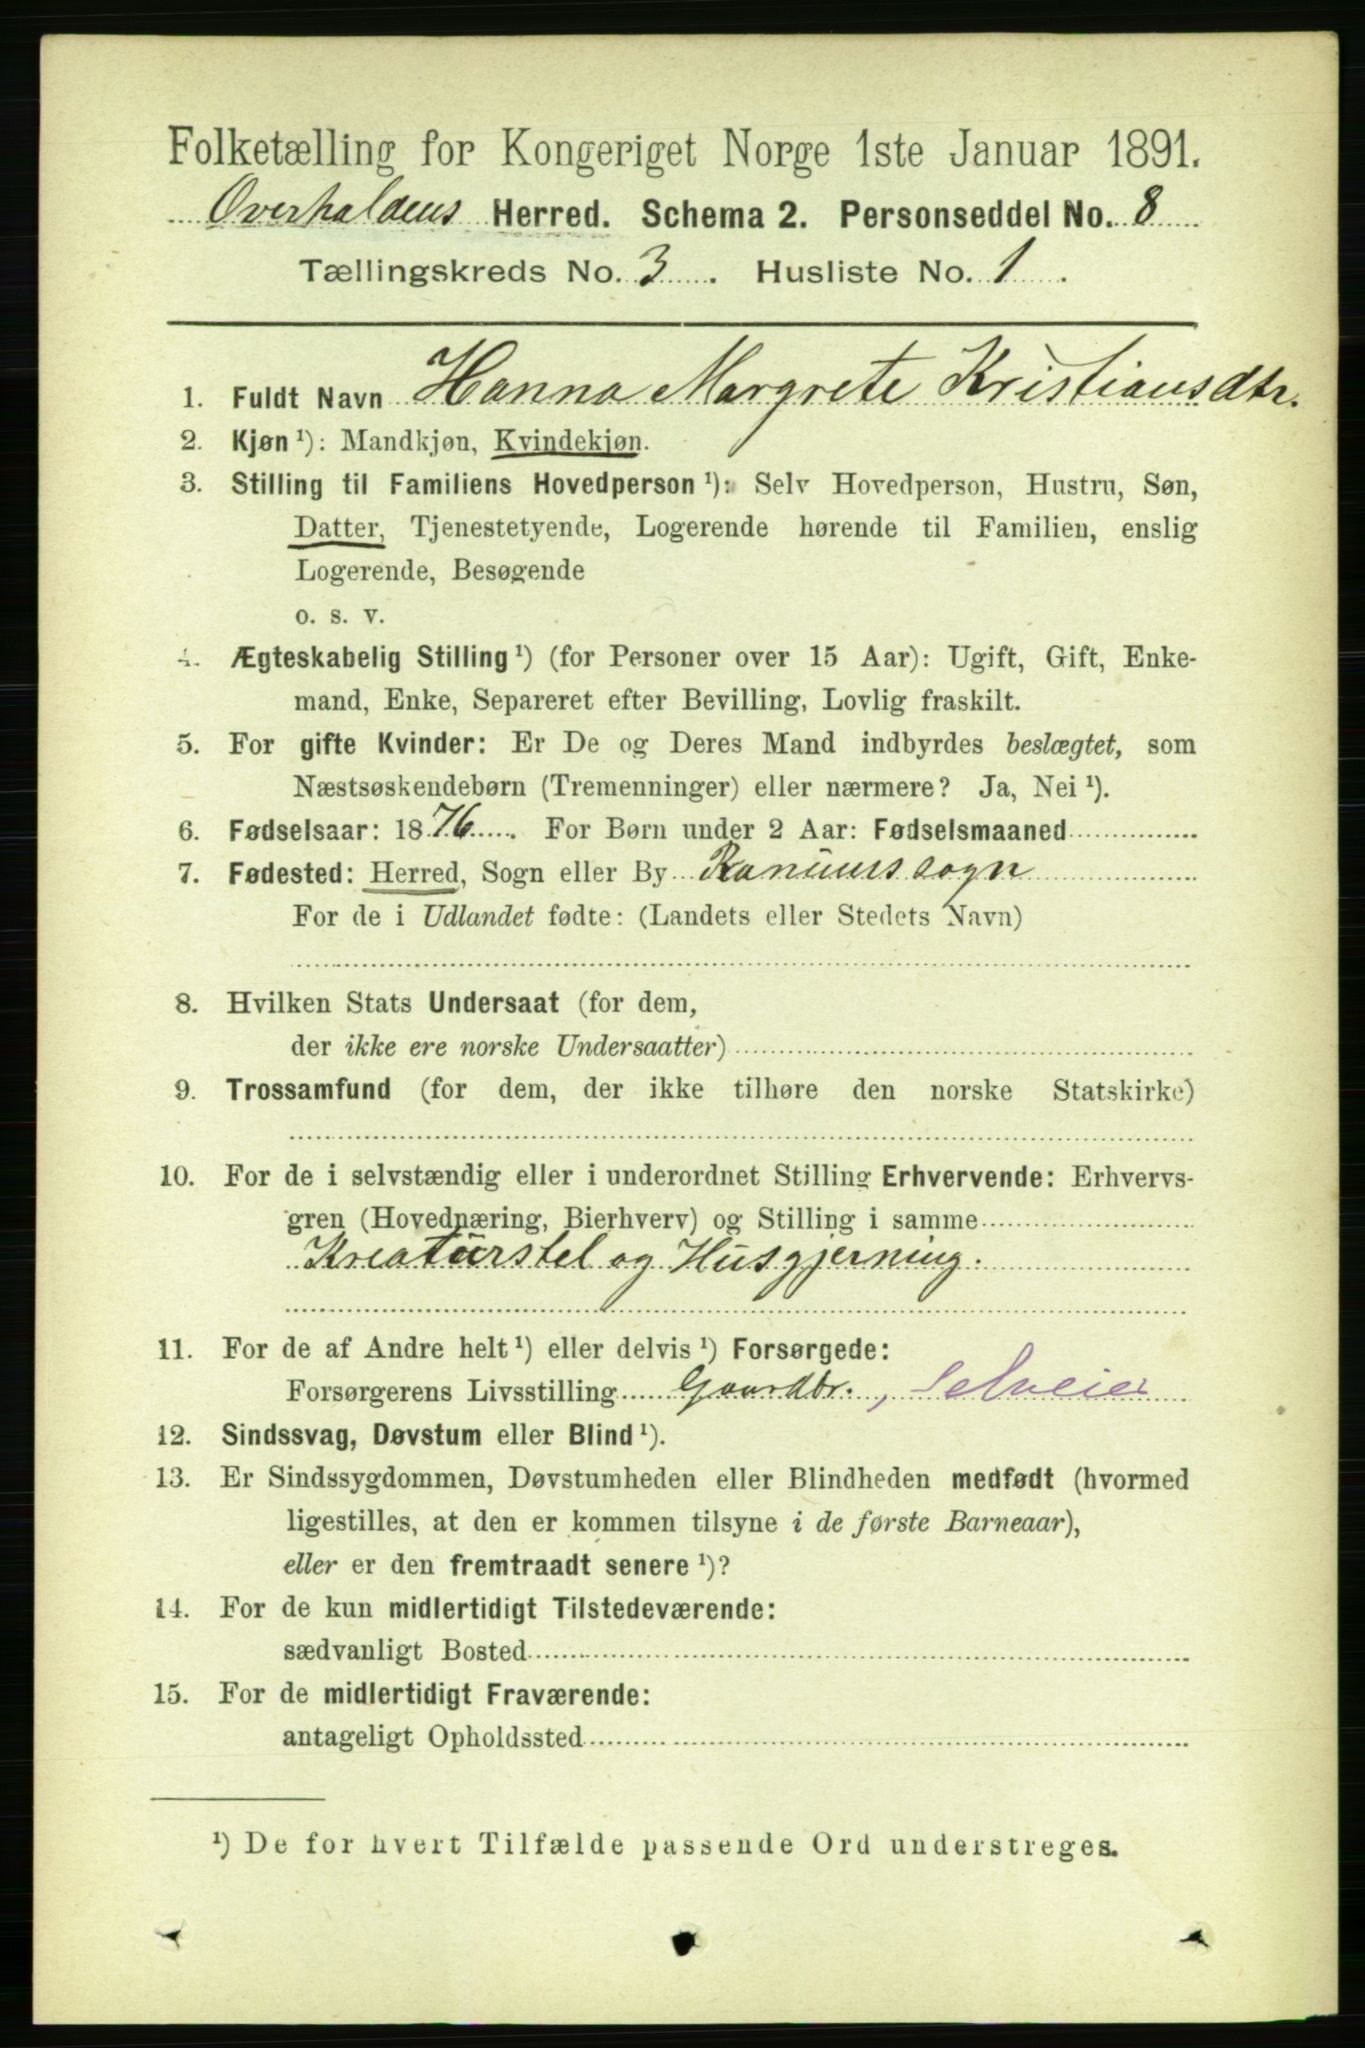 Folketælling for Kongeriget Norge 1ste Januar 1891.
Overhaldens Herred. Schema 2. Personseddel No. 8
Tællingskreds No. 3. Husliste No. 1.
1. Fuldt Navn Hanna Margrete Kristiansdtr.
2. Kjøn ¹): Mandkjøn, Kvindekjøn.
3. Stilling til Familiens Hovedperson ¹): Selv Hovedperson, Hustru, Søn,
Datter, Tjenestetyende, Logerende hørende til Familien, enslig
Logerende, Besøgende
o. s. v.
4. Ægteskabelig Stilling ¹) (for Personer over 15 Aar): Ugift, Gift, Enke-
mand, Enke, Separeret efter Bevilling, Lovlig fraskilt.
5. For gifte Kvinder: Er De og Deres Mand indbyrdes beslægtet, som
Næstsøskendebørn (Tremenninger) eller nærmere? Ja, Nei ¹).
6. Fødselsaar: 1876. For Børn under 2 Aar: Fødselsmaaned
7. Fødested: Herred, Sogn eller By Ranumssogn
For de i Udlandet fødte: (Landets eller Stedets Navn)
8. Hvilken Stats Undersaat (for dem,
der ikke ere norske Undersaatter)
9. Trossamfund (for dem, der ikke tilhøre den norske Statskirke)
10. For de i selvstændig eller i underordnet Stilling Erhvervende: Erhvervs-
gren (Hovednæring, Bierhverv) og Stilling i samme
Kreaturstel og Husgjerning.
11. For de af Andre helt ¹) eller delvis ¹) Forsørgede:
Forsørgerens Livsstilling Gaardbr., Selveier
12. Sindssvag, Døvstum eller Blind ¹).
13. Er Sindssygdommen, Døvstumheden eller Blindheden medfødt (hvormed
ligestilles, at den er kommen tilsyne i de første Barneaar),
eller er den fremtraadt senere ¹)?
14. For de kun midlertidigt Tilstedeværende:
sædvanligt Bosted
15. For de midlertidigt Fraværende:
antageligt Opholdssted
¹) De for hvert Tilfælde passende Ord understreges.